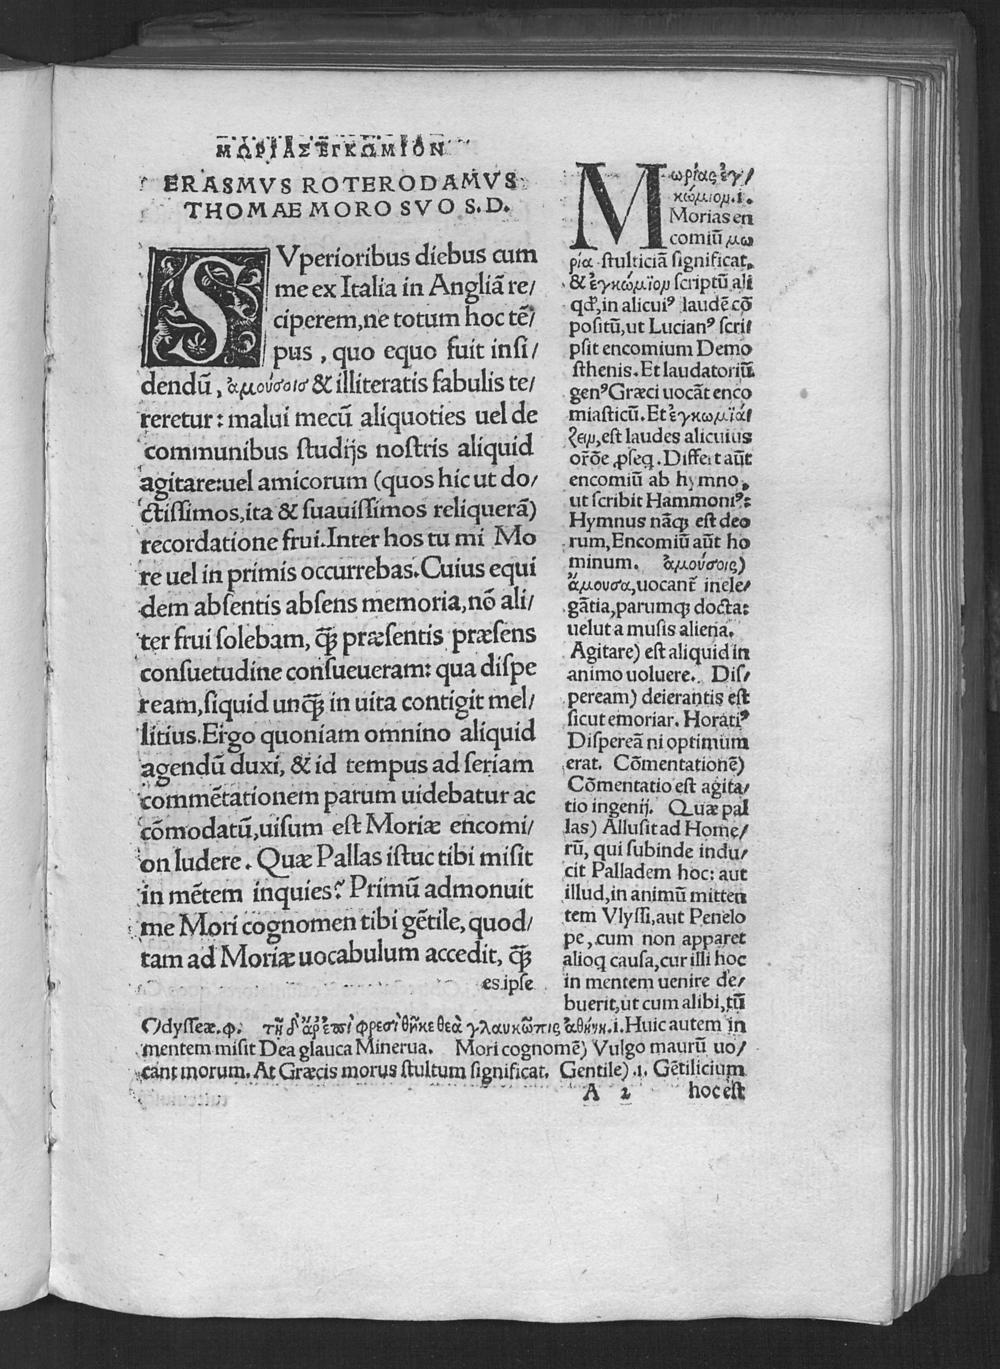 ΜΩΡΙΑΣ ΕΓΚΩΜΙΟΝ
ERASMVS ROTERODAMVS
THOMAE MORO SVO S.D.
SVperioribus diebus cum
me ex Italia in Angliā re/
ciperem,ne totum hoc tē/
pus , quo equo fuit insi/
dendū, ἀμούσοισ & illiteratis fabulis te/
reretur: malui mecū aliquoties uel de
communibus studijs nostris aliquid
agitare:uel amicorum (quos hic ut do/
ctissimos,ita & suauissimos reliquerā)
recordatione frui.Inter hos tu mi Mo
re uel in primis occurrebas.Cuius equi
dem absentis absens memoria,nō ali/
ter frui solebam, q̄ȝ præsentis præsens
consuetudine consueueram: qua dispe
ream,siquid unq̄ȝ in uita contigit mel/
litius.Ergo quoniam omnino aliquid
agendū duxi, & id tempus ad seriam
commētationem parum uidebatur ac
cōmodatū,uisum est Moriæ encomi/
on ludere. Quæ Pallas istuc tibi misit
in mētem inquies? Primū admonuit
me Mori cognomen tibi gētile, quod/
tam ad Moriæ uocabulum accedit, q̄ȝ
es ipse
Mωρίας ἐγ/
κώμιον.i.
Morias en
comiū μω
ρία stulticiā significat,
& ἐγκώμϊον scriptū ali
qď,in alicuiꝰ laudē cō
positū,ut Lucianꝰ scri/
psit encomium Demo
sthenis. Et laudatoriū
genꝰ Græci uocāt enco
miasticū. Et ἐγκωμϊά/
ζειν,est laudes alicuius
orōe ꝓseq. Differt aūt
encomiū ab hymno,
ut scribit Hammoniꝰ:
Hymnus nāqȝ est deo
rum,Encomiū aūt ho
minum. ἀμούσοις)
ἄμουσα,uocant inele/
gātia,parumqȝ docta:
uelut a musis aliena.
Agitare) est aliquid in
animo uoluere. Dis/
peream) deierantis est
sicut emoriar. Horatiꝰ
Dispereā ni optimum
erat. Cōmentationē)
Cōmentatio est agita/
tio ingenij. Quæ pal
las) Allusit ad Home/
rū, qui subinde indu/
cit Palladem hoc: aut
illud,in animū mitten
tem Vlyssi,aut Penelo
pe,cum non apparet
alioq causa,cur illi hoc
in mentem uenire de/
buerit,ut cum alibi,tū
Odysseæ.φ. τῇ δ' ἄρ ἐπὶ φρεσὶ θῆκε θεὰ γλαυκῶπις ἀθήνη.i. Huic autem in
mentem misit Dea glauca Minerua. Mori cognomē) Vulgo maurū uo/
cant morum. At Græcis morus stultum significat. Gentile) .i. Gētilicium
A 2 hoc est